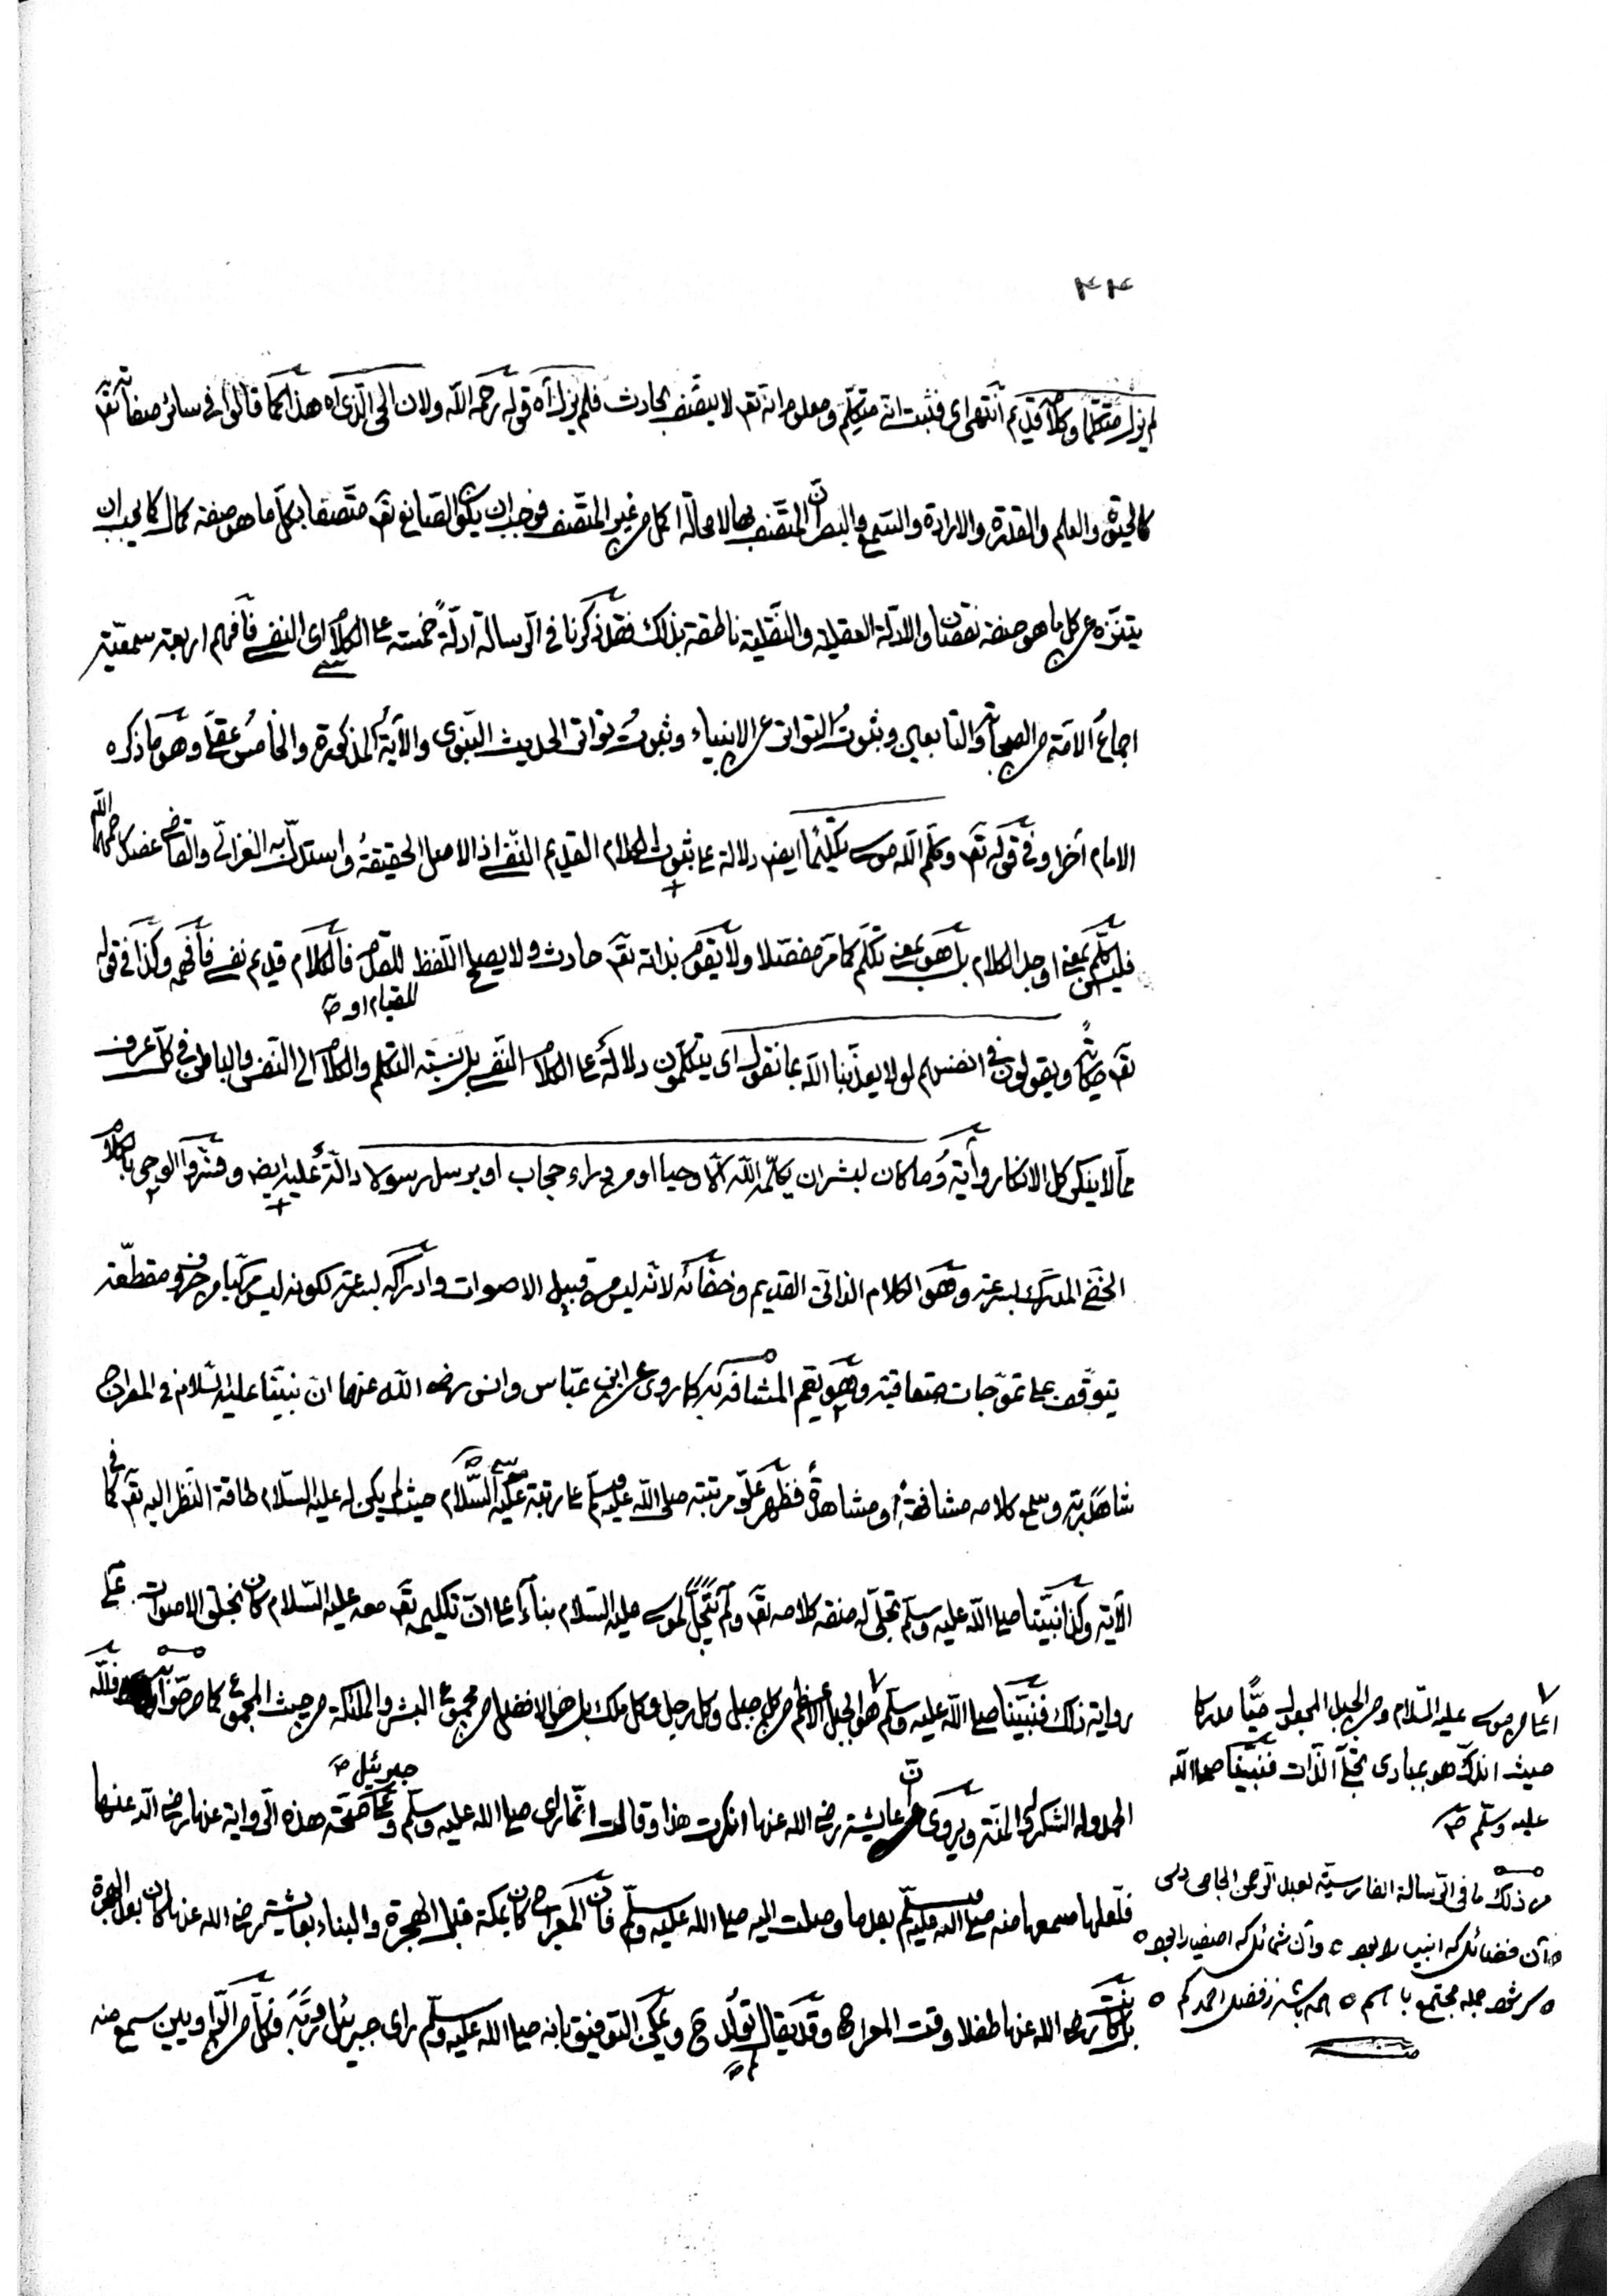 ٤٤
لم يزل متكلما وكلامه قديم انتهى اى فثبت انه متكلم ومعلوم انه تع لا يتصف بحادث فلم يزل اه قوله رحمه الله ولان الحى الذى اه هذا كما قالوا فى سائر صفاته تع
كالحيوة والعلم والقدرة والارادة والسمع والبصر ان المتصف بها لا محالة اكمل من غير المتصف فوجب ان يكون الصانع تع متصفا بكل ما هو صفة كمال كما يجب ان
يتنزه عن كل ما هو صفة نقصان والادلة العقلية والنقلية ناطقة بذلك فقد ذكرنا فى الرسالة ادلة خمسة على الكلام اى النفسى فافهم اربعة سمعية
اجماع الامة من الصحابة والتابعين وثبوت التواتر عن الانبياء وثبوت تواتر الحديث النبوى والآية المذكورة والخامس عقلى وهو ما ذكره
الامام آخرا وفى قوله تع وكلم الله موسى تكليما ايض دلالة على ثبوت الكلام القديم النفسى اذ الاصل الحقيقة واستدل به الغزالى والقاضى عضد رحمهما الله
فليس كلم بمعنى اوجد الكلام بل هو بمعنى تكلم كما مر مفصلا ولا يقوم بذاته تع حادث ولا يصلح اللفظ للقدم فالكلام قديم نفسى فافهمه وكذا فى قوله
للقيام او صح
تع حكاية ويقولون فى انفسهم لولا يعذبنا الله بما نقول اى يتكلمون دلالة على الكلام النفسى بل نسبة التكلم والكلام الى النفس والباطن فى كل عرف
مما لا ينكر كل الانكار وآية وما كان لبشر ان يكلمه الله الا وحيا او من وراء حجاب او يرسل رسولا دالة عليه ايض وفسروا الوحى بالكلام
الخفى المدرك بسرعة وهو الكلام الذاتى القديم وخفائه لانه ليس من قبيل الاصوات وادراكه بسرعة لكونه ليس مركبا من حروف مقطعة
يتوقف على تموجات متعاقبة وهو يعم المشافه به كما روى عن ابن عباس وانس رضى الله عنهما ان نبينا عليه السلام فى المعراج
شاهد ربه وسمع كلامه مشافهة او مشاهدة فظهر علو مرتبته صلى الله عليه وسلم على مرتبة موسى عليه السلام حيث لم يكن له عليه السلام طاقة النظر اليه تع كما فى
الآية وكذا نبينا صلى الله عليه وسلم تجلى له صفة كلامه تع ولم يتجل لموسى عليه السلام بناء على ان تكليمه تع معه عليه السلام كان بخلق الاصوات على
رواية ذلك فنبينا صلى الله عليه وسلم هو الجبل الاعظم من كل جبل وكل رجل وكل ملك بل هو الافضل من مجموع البشر والملئكة من حيث المجموع كما صرحوا به فلله
الحمد وله الشكر وله المنة ويروى ان عايشة رضى الله عنها انكرت هذا وقالت انما رأى صلى الله عليه وسلم جبرئيل صح وعلى صحة هذه الرواية عنها رضى الله عنها
فلعلها سمعها منه صلى الله عليه وسلم بعد ما وصلت اليه صلى الله عليه وسلم فان المعراج كان بمكة قبل الهجرة والبناء بعايشة رضى الله عنها كان بعد الهجرة
بل كانت رضى الله عنها طفلا وقت المعراج وقد يقال لم تولد ح ويمكن التوفيق بانه صلى الله عليه وسلم راى جبرئيل وربه فكل من الراويين سمع منه
اى من موسى عليه السلام ومن الجبل المجعول حيا مدركا
حيث اندك هو بمبادى تجلى الذات فنبينا صلى الله
عليه وسلم صح
من ذلك ما فى الرسالة الفارسية لعبد الرحمن الجامى
آن فضائل كه انبيا را بود وآن شمائل كه اصفيا را بود
شد جمله مجتمع باهم
منه